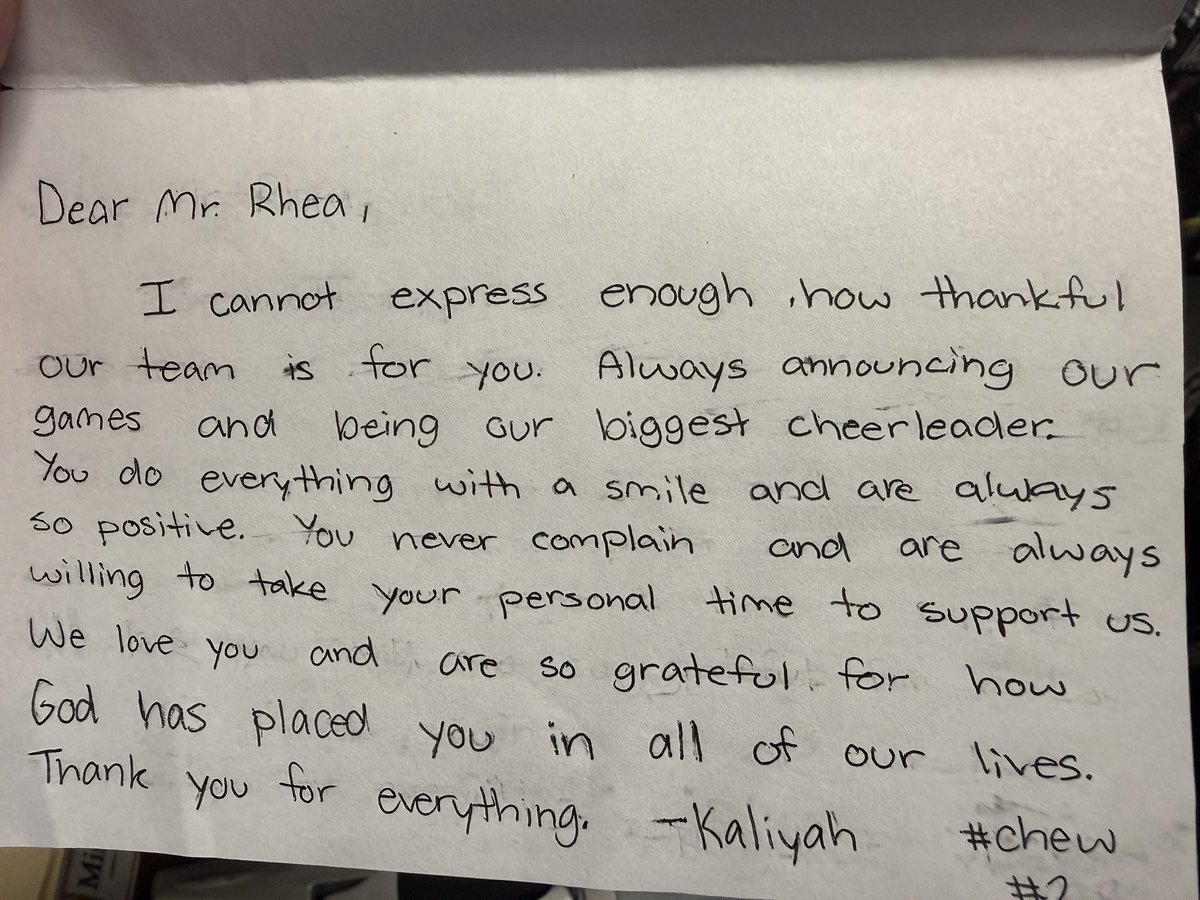 Dear Mr. Rhea,
I cannot express enough how thankful
our team is for you. Always announcing our
games and being our biggest cheerleader.
You do everything with a smile and are always
so positive. You never complain and are always
willing to take your personal time to support us.
We love you and are so grateful for how
God has placed you in all of our lives.
Thank you for everything. -Kaliyah #chew
#2
Mi